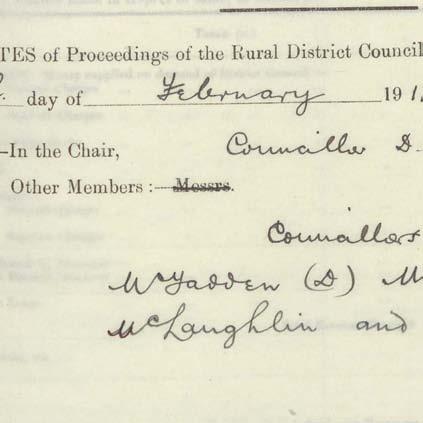 TES of Proceedings of the Rural District Council
day of February 191
-In the Chair, Councillor D
Other Members :— Messrs.
Councillors
McFadden (D) M
McLaughlin and